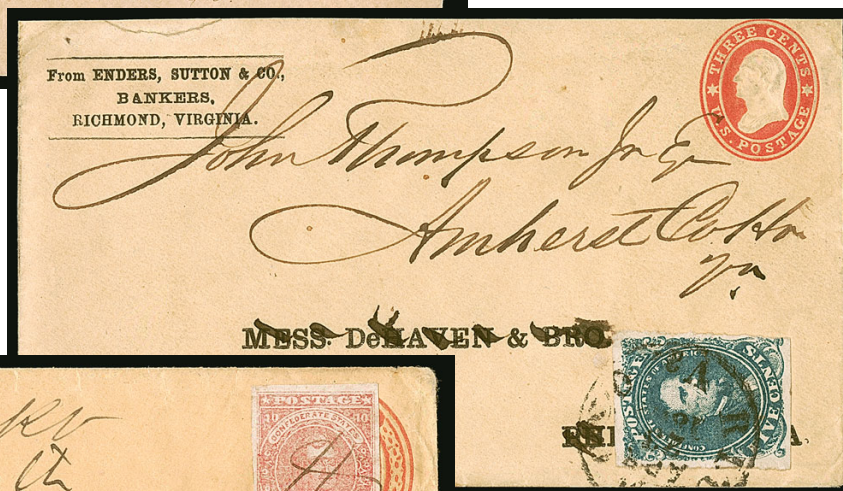 From ENDERS, SUTTON & CO.,
BANKERS,
RICHMOND, VIRGINIA.
THREE CENTS
U.S. POSTAGE
John Thompson Jr Esq
Amherst Co Ho
Va
MESS. DeHAVEN & BRO.
POSTAGE
CONFEDERATE STATES
FIVE CENTS
POSTAGE
10 10
CONFEDERATE STATES